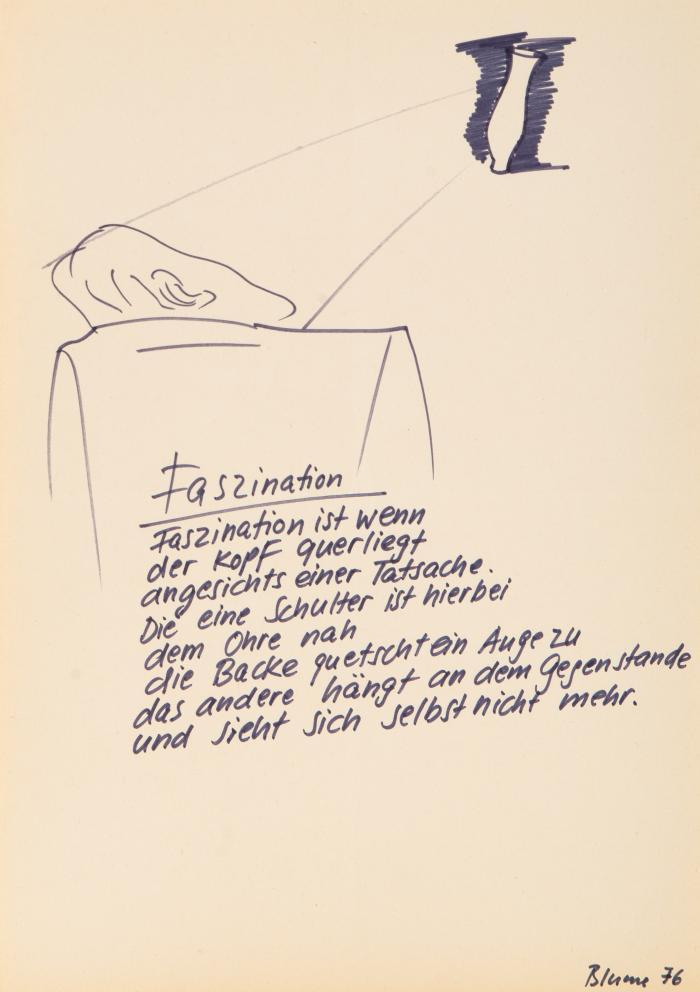 Faszination
Faszination ist wenn
der Kopf querliegt
angesichts einer Tatsache.
Die eine Schulter ist hierbei
dem Ohre nah
die Backe quetscht ein Auge zu
das andere hängt an dem Gegenstande
und sieht sich selbst nicht mehr.
Blume 76